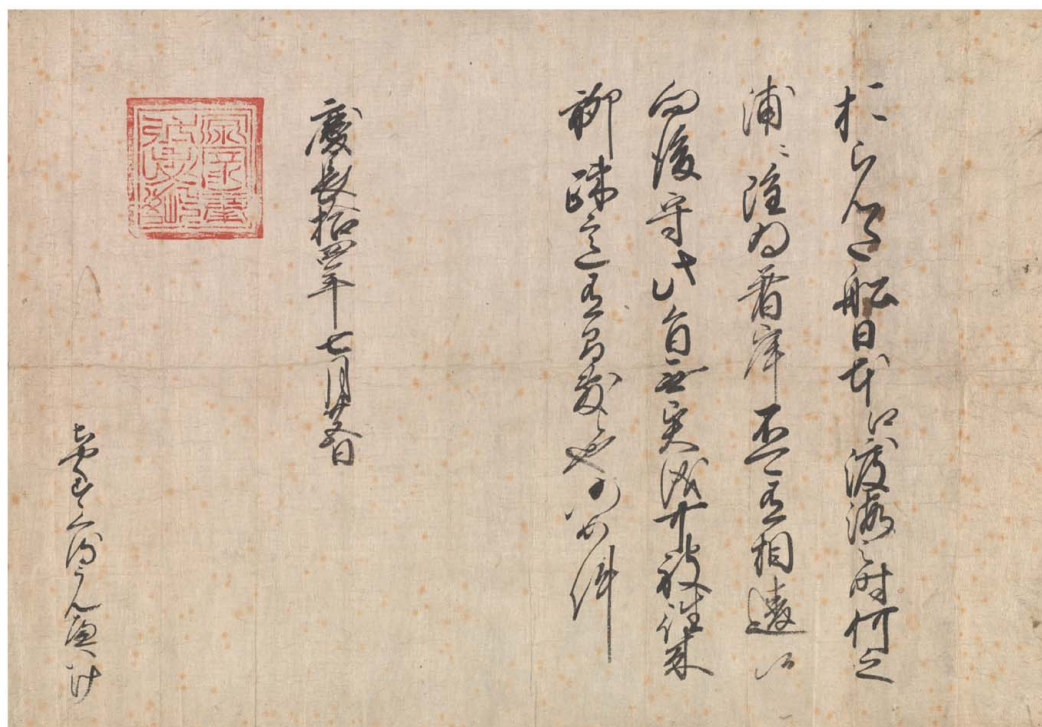 おらんだ船日本江渡海之時何之
浦々雖為着岸不可有相違候
向後守此旨無異儀可被往来
聊疎意有間敷候也仍如件
慶長拾四年七月廿五日
ちやくすくるうんへいけ
源家康弘忠恕